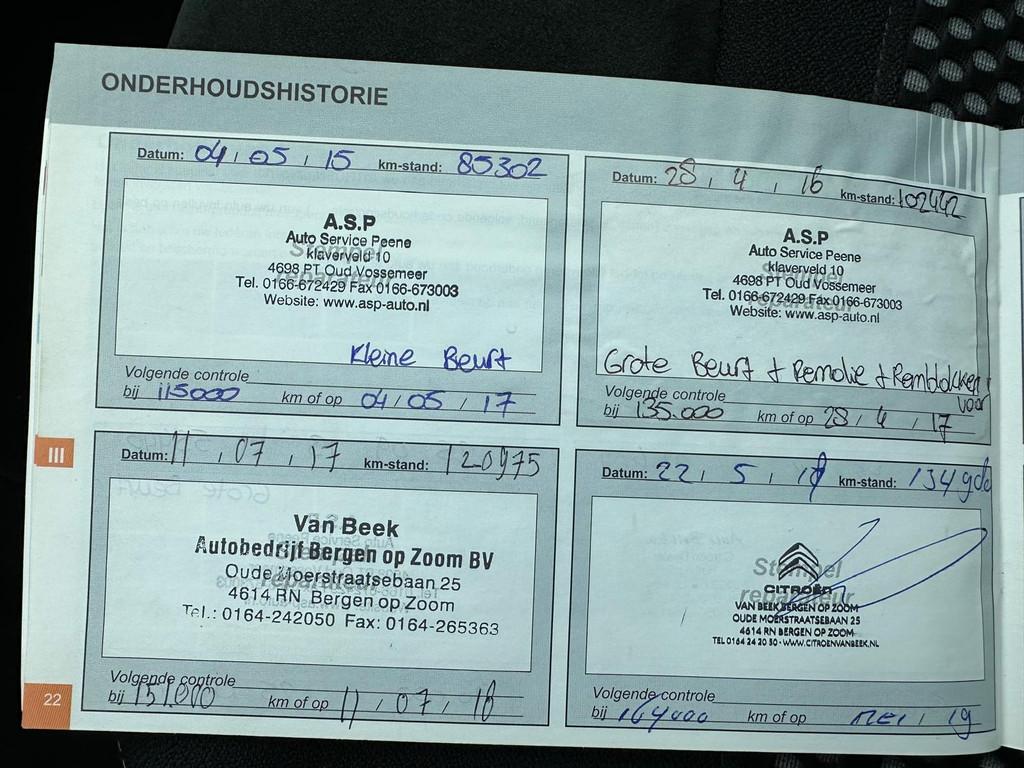 ONDERHOUDSHISTORIE
Datum: 04 / 05 / 15 km-stand: 85302
A.S.P
Auto Service Peene
klaverveld 10
4698 PT Oud Vossemeer
Tel. 0166-672429 Fax 0166-673003
Website: www.asp-auto.nl
Stempel
reparateur
Kleine Beurt
Volgende controle
bij 115000 km of op 04 / 05 / 17
Datum: 28 / 4 / 16 km-stand: 102442
A.S.P
Auto Service Peene
klaverveld 10
4698 PT Oud Vossemeer
Tel. 0166-672429 Fax 0166-673003
Website: www.asp-auto.nl
Stempel
reparateur
Grote Beurt + Remolie + Remblokken
voor
Volgende controle
bij 135.000 km of op 28 / 4 / 17
III
Datum: 11 / 07 / 17 km-stand: 120975
Van Beek
Autobedrijf Bergen op Zoom BV
Oude Moerstraatsebaan 25
4614 RN Bergen op Zoom
Tel.: 0164-242050 Fax: 0164-265363
Volgende controle
bij 151.000 km of op 11 / 07 / 18
Datum: 22 / 5 / 18 km-stand:
Stempel
reparateur
CITROËN
VAN BEEK BERGEN OP ZOOM
OUDE MOERSTRAATSEBAAN 25
4614 RN BERGEN OP ZOOM
TEL 0164 24 20 50 - WWW.CITROENVANBEEK.NL
Volgende controle
bij 164000 km of op MEI / 19
22